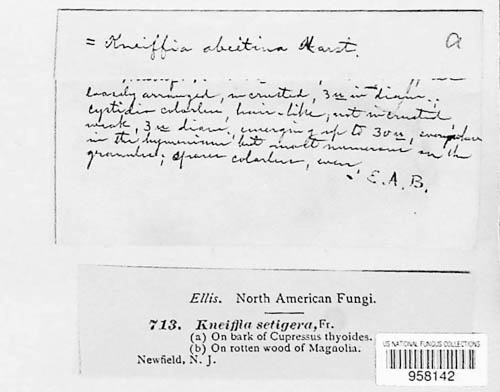 = Kneiffia abietina Karst.
a
loosely arranged, incrusted, 3 u in diam.;
cystidia colorless, hair-like, not incrusted,
weak, 3 u diam, emerging up to 30 u,
in the hymenium but most numerous on the
granules; spores colorless, even
E. A. B.
Ellis. North American Fungi.
713. Kneiffia setigera, Fr.
(a) On bark of Cupressus thyoides.
(b) On rotten wood of Magnolia.
Newfield, N. J.
US NATIONAL FUNGUS COLLECTIONS
958142